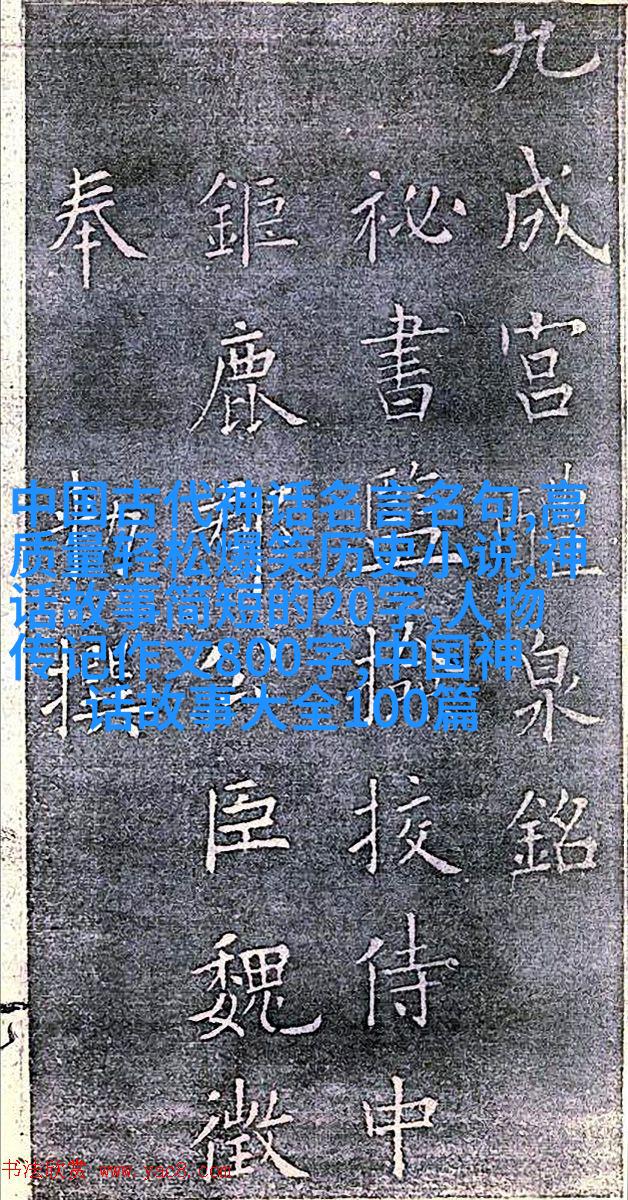 九成宮泉銘
祕書監檢挍侍中
鉅鹿臣魏徵
奉
撰
中国古代神话名言名句,高
质量轻松爆笑历史小说,神
话故事简短的20字,人物
传记作文800字,中国神
话故事大全100篇
书法欣赏 www.yac8.com